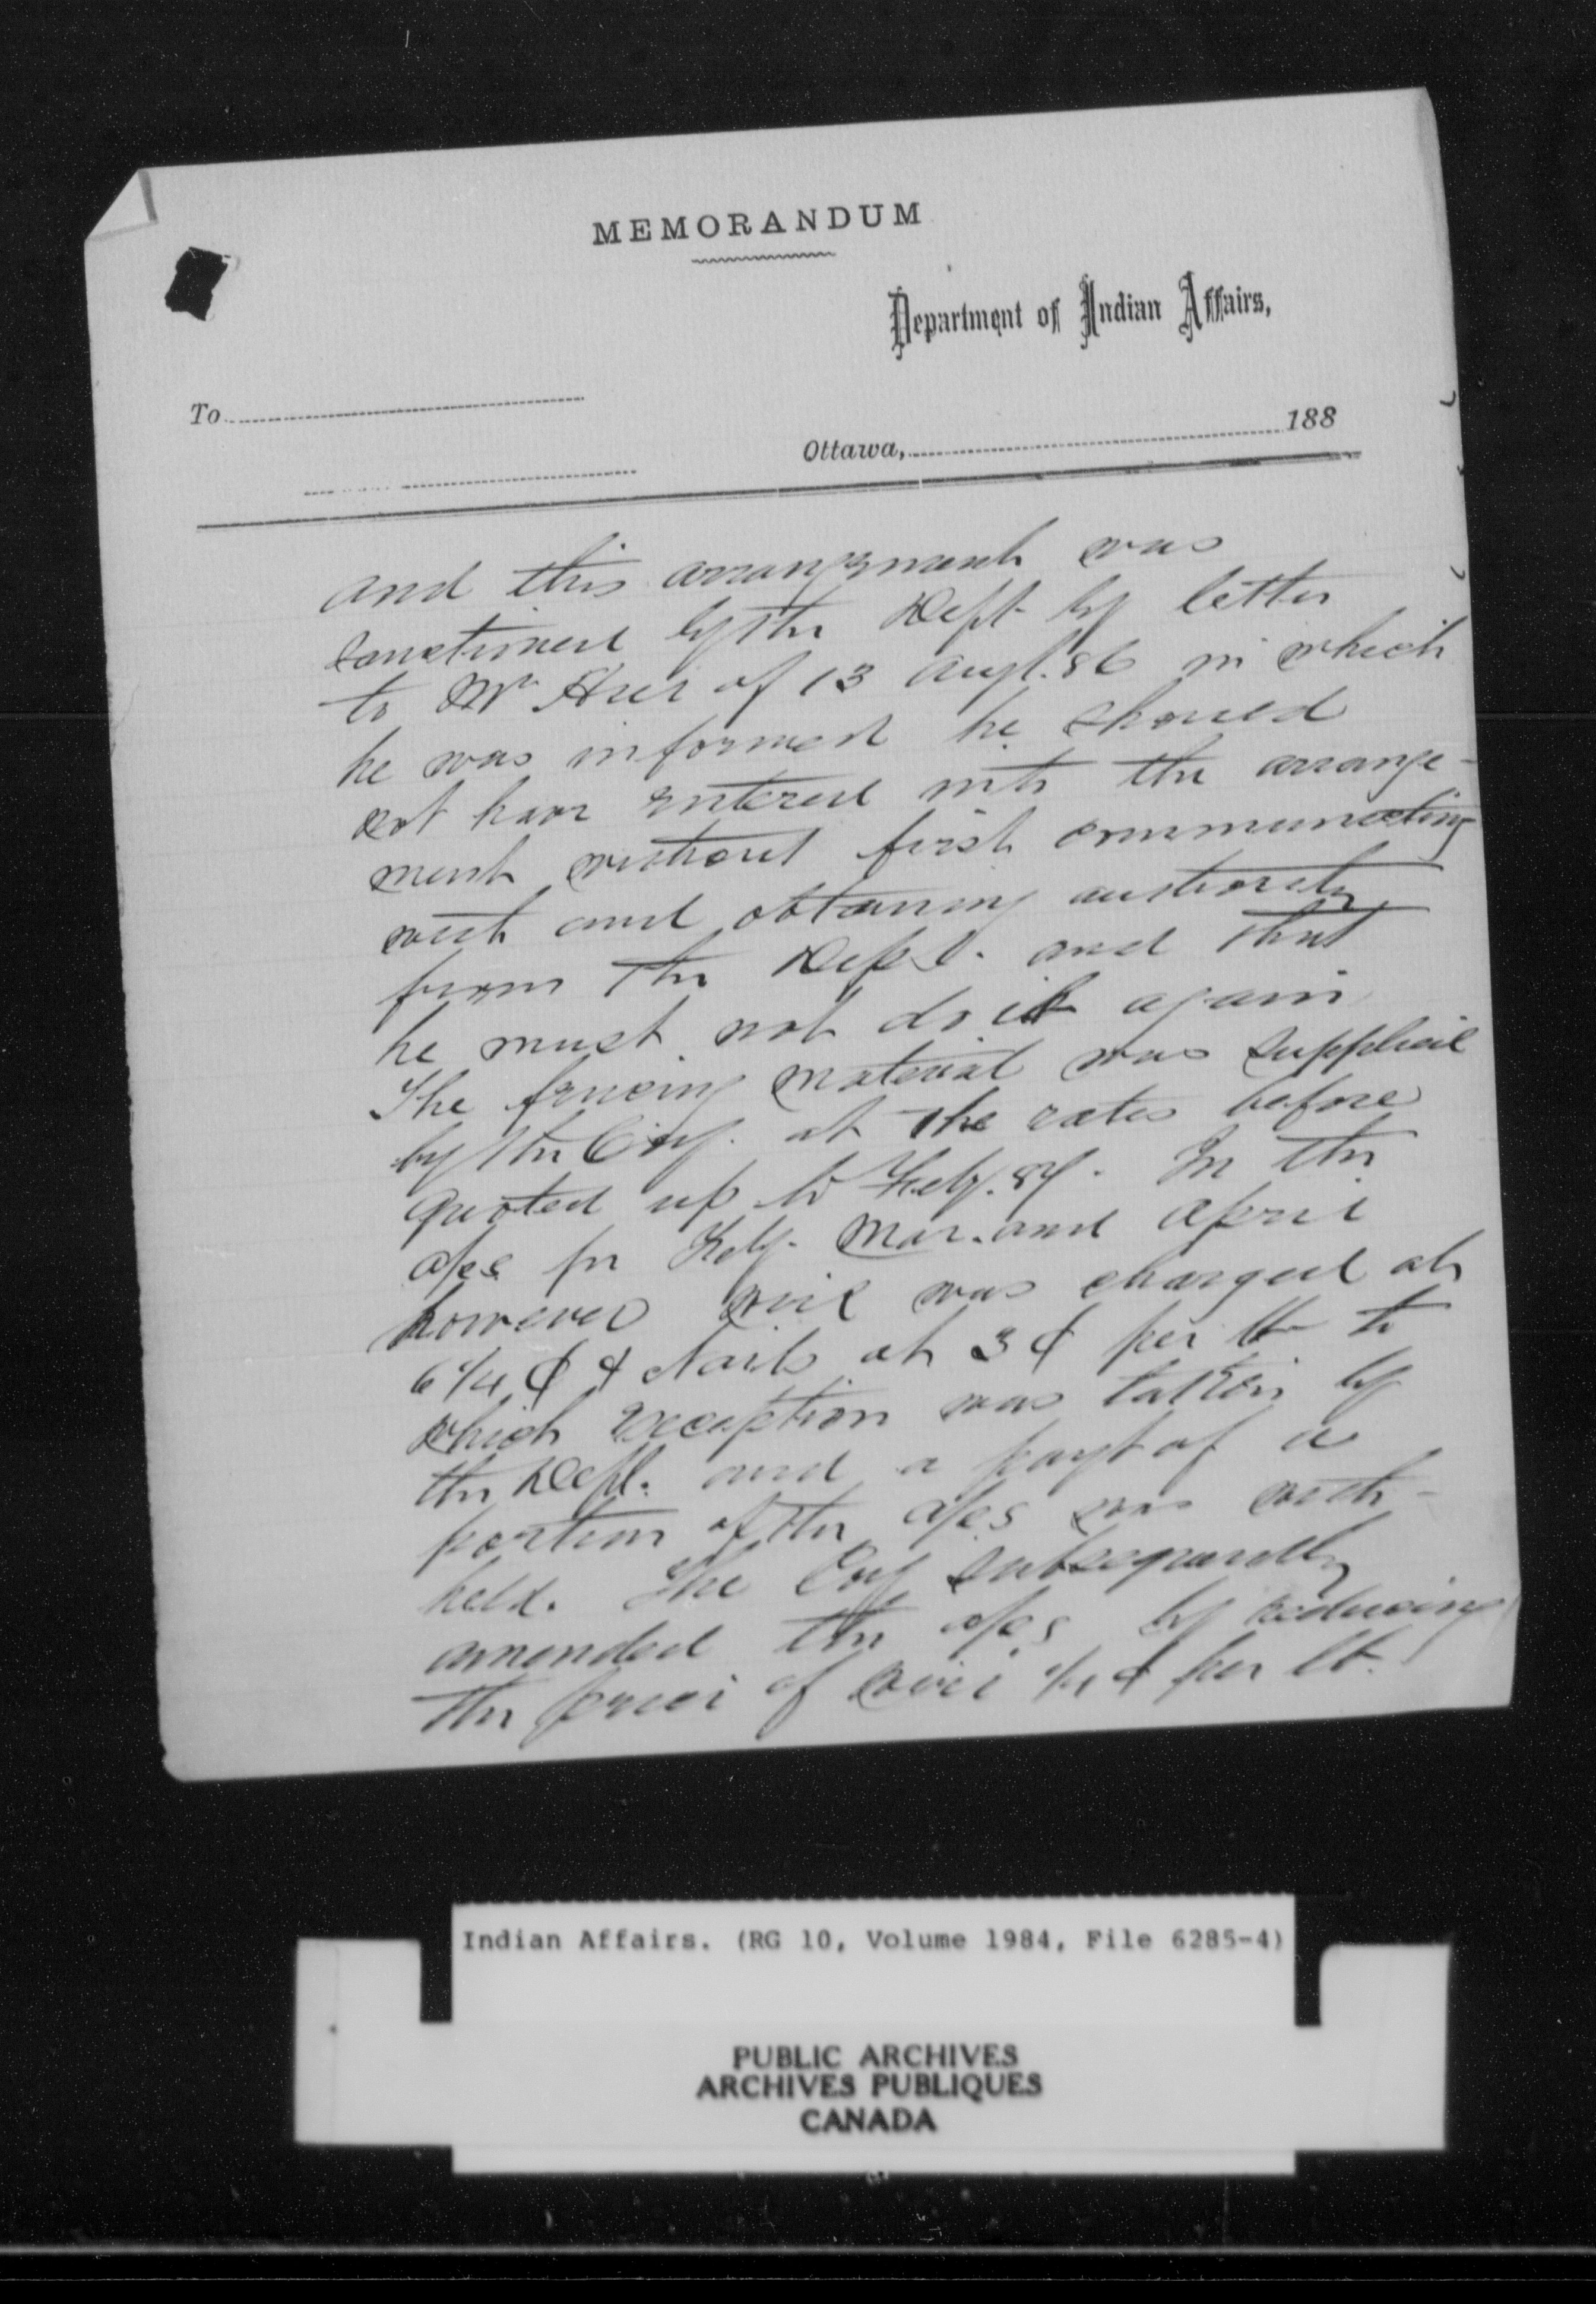 MEMORANDUM
Department of Indian Affairs,
To
Ottawa, 188
and this arrangement was
sanctioned by the Dept. by letter
to Mr of 13 Augt. 86 in which
he was informed he should
not have entered into the arrange-
ment without first communicating
with and obtaining authority
from the Dept. and that
he must not do it again
The fencing material was supplied
by the Coy. at the rates before
quoted up to Feby. 87. In the
a/cs for Feby. Mar. and April
however wire was charged at
6 1/4 ¢ & Nails at 3 ¢ per lb to
which exception was taken by
the Dept. and a payt of a
portion of the a/cs was with-
held. The Coy subsequently
amended the a/cs by reducing
the price of wire 1/4 ¢ per lb.
Indian Affairs. (RG 10, Volume 1984, File 6285-4)
PUBLIC ARCHIVES
ARCHIVES PUBLIQUES
CANADA